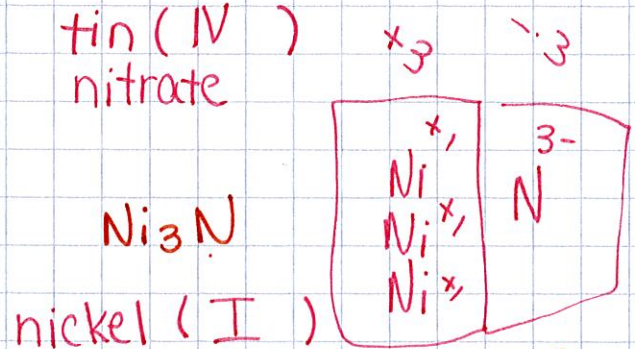 tin (IV)
nitrate
+3 -3
Ni+1 N3-
Ni3N Ni+1
Ni+1
nickel (I)